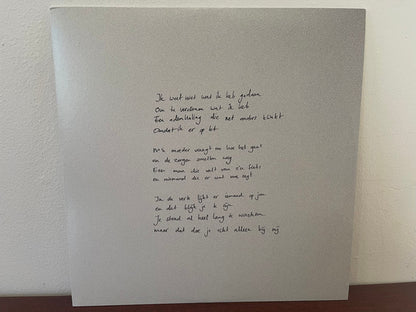 Ik weet niet wat ik heb gedaan
Om te verdienen wat ik heb
Een ademhaling die net anders klinkt
Omdat ik er op let
M'n moeder vraagt me hoe het gaat
en de zorgen smelten weg
Een man die valt van z'n fiets
en niemand die er wat van zegt
In de verte lijkt er iemand op jou
en dat blijk je te zijn
Je stond al heel lang te wachten
maar dat doe je echt alleen bij mij